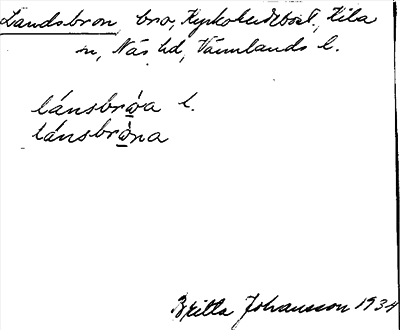 Landsbron, bro, Kyrkoludebol, Kila
sn, Näs hd, Värmlands l.
lánsbròa l.
lánsbròna
Britta Johansson 1934